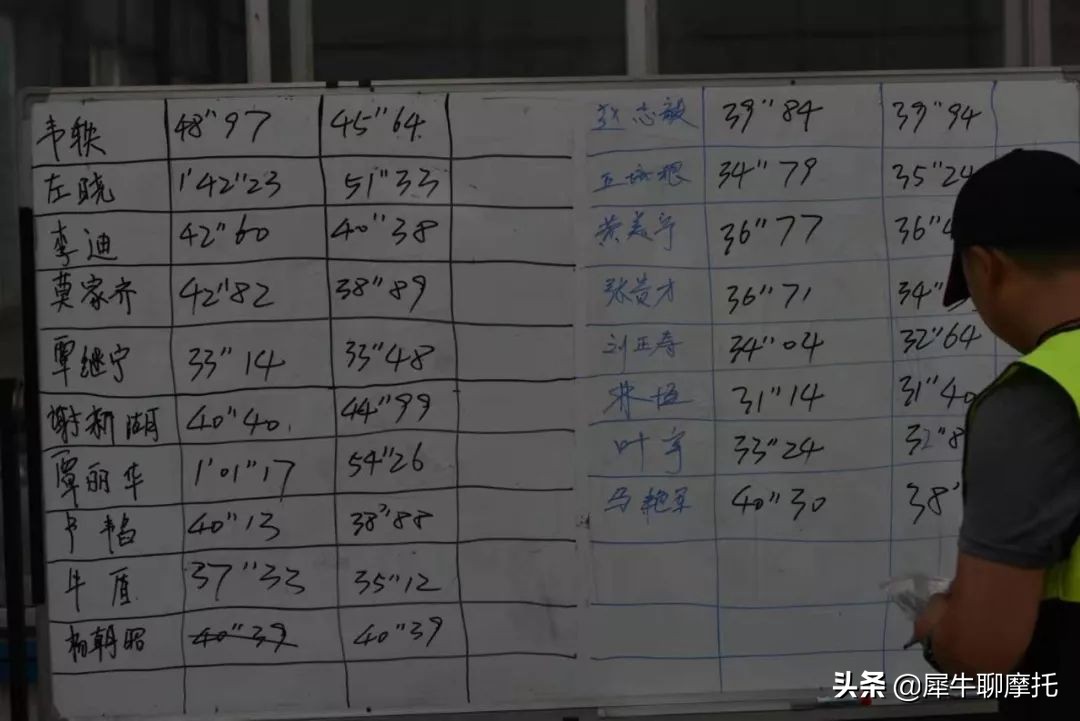 韦轶 48"97 45"64
左晓 1'42"23 51"33
李迪 42"60 40"38
莫家齐 42"82 38"89
覃继宁 33"14 33"48
谢新湖 40"40 44"99
覃丽华 1'01"17 54"26
40"13 38"88
牛盾 37"33 35"12
杨朝昭 40"39 40"39
39"84 39"94
34"79 35"24
黄美宁 36"77 36"
张贵才 36"71 34"
刘正寿 34"04 32"64
林恒 31"14 31"40
叶宇 33"24 32"8
马艳军 40"30 38"
头条 @犀牛聊摩托